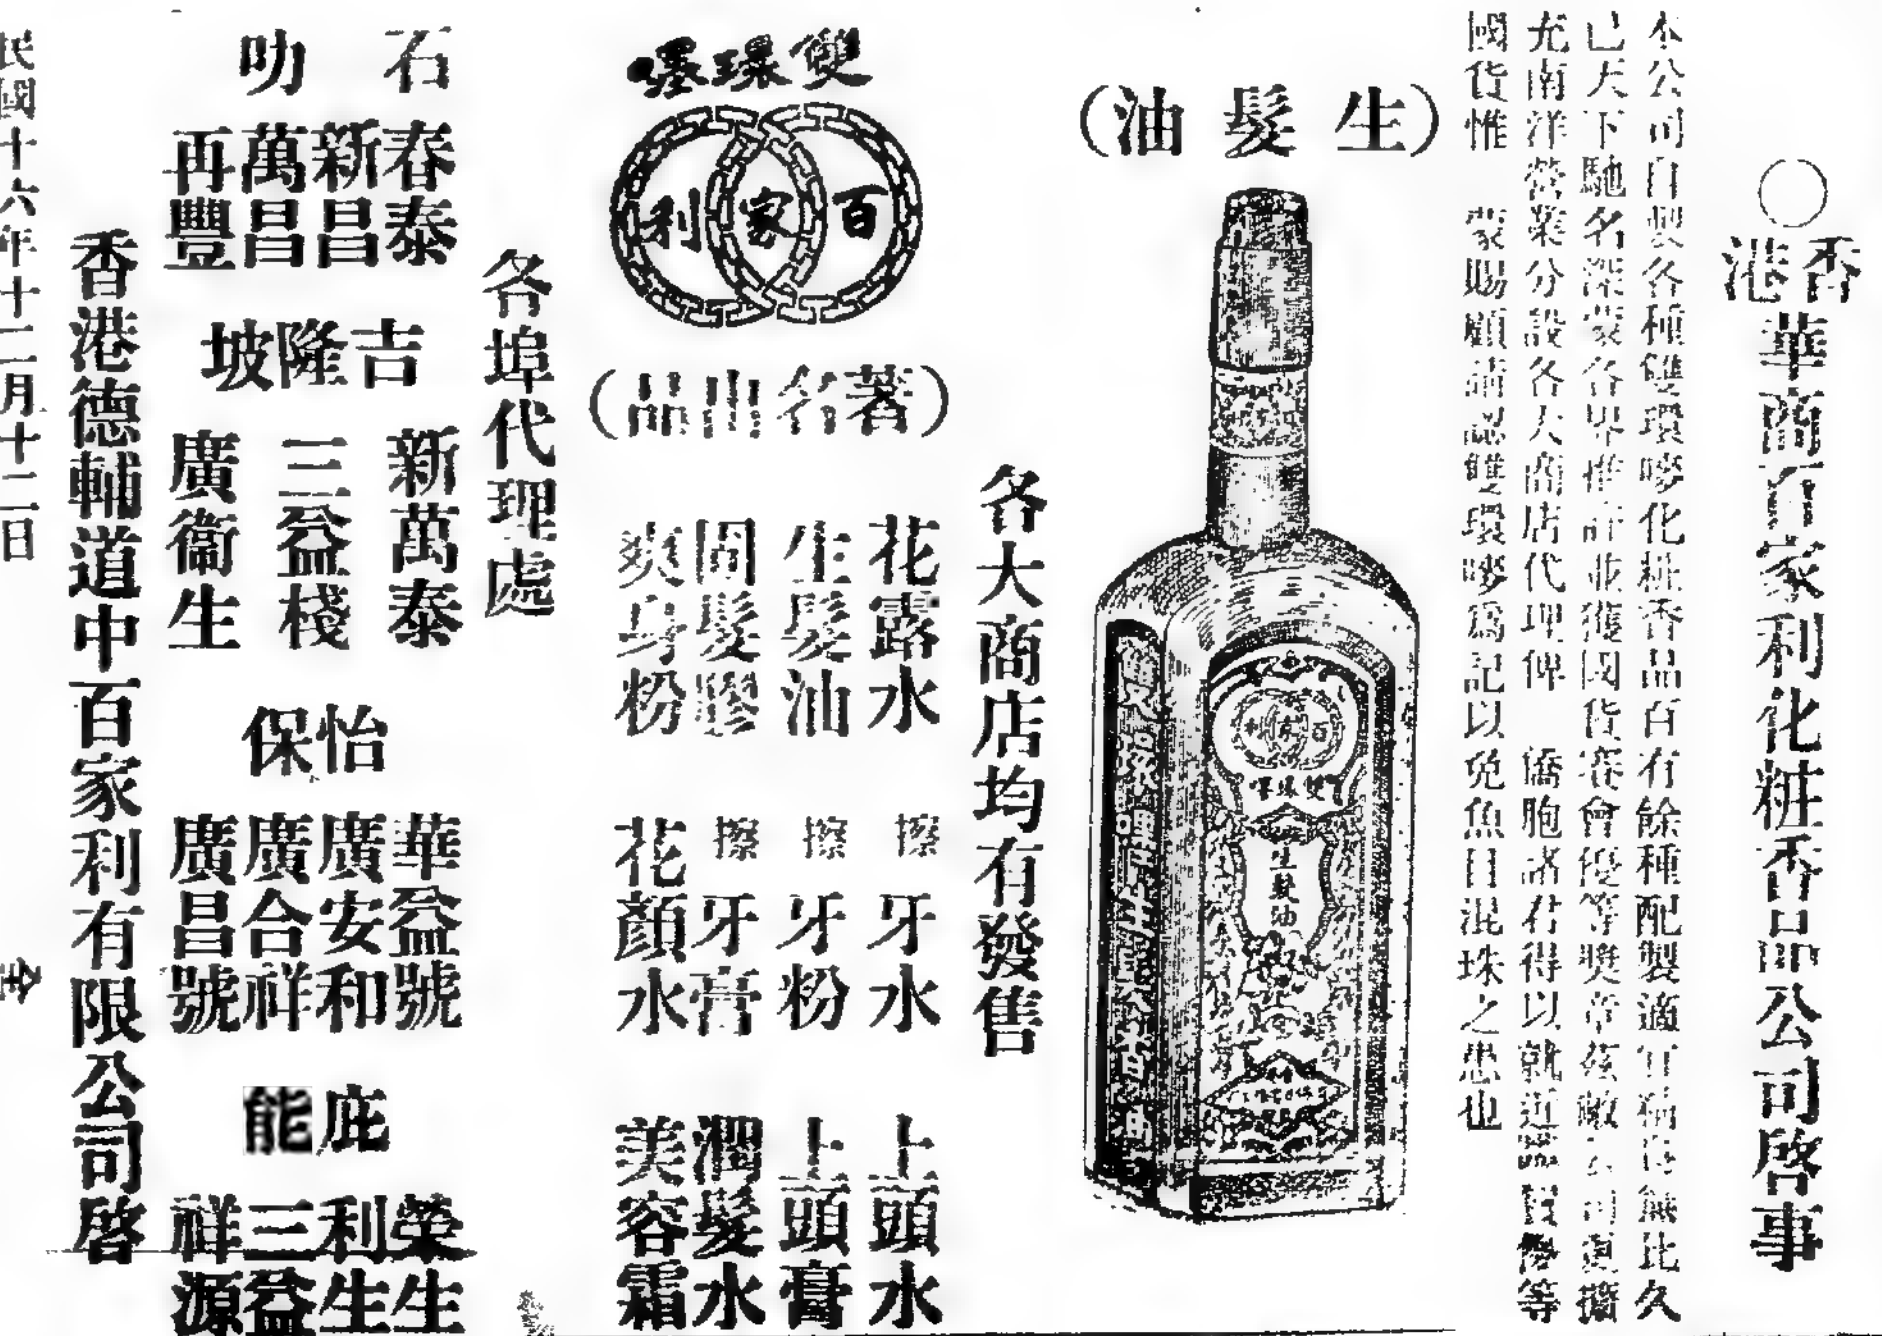 ○香港華商百家利化粧香品公司啓事
本公司自製各種雙環嘜化粧香品百有餘種配製適宜 無比久
已天下馳名深蒙各界 許並獲國貨賽會優等獎章茲敝公司更擴
充南洋營業分設各大商店代理俾 僑胞諸君得以就近 等
國貨惟 蒙賜顧請認雙環嘜爲記以免魚目混珠之患也
(生髮油)
百家利
雙環嘜
生髮油
各大商店均有發售
雙環嘜
百家利
(著名出品)
花露水 擦牙水 上頭水
生髮油 擦牙粉 上頭膏
固髮膠 擦牙膏 潤髮水
爽身粉 花顏水 美容霜
各埠代理處
石叻
春泰
新昌
萬昌
再豐
吉隆坡
新萬泰
三益棧
廣衞生
怡保
華益號
廣安和
廣合祥
廣昌號
庇能
榮生
利生
三益
祥源
香港德輔道中百家利有限公司啓
民國十六年十二月十二日